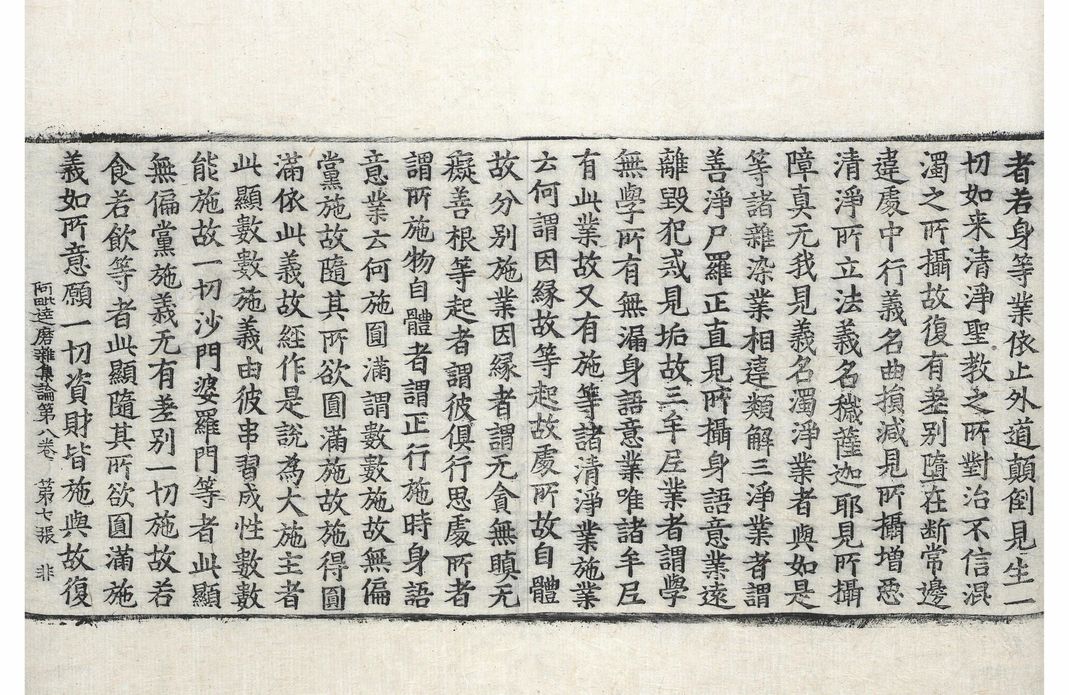 者若身等業依止外道顛倒見生一
切如来清淨聖教之所對治不信
濁之所攝故復有差別墮在断常邊
違處中行義名曲損減見所攝增惡
清淨所立法義名穢薩迦耶見所攝
障真无我見義名濁淨業者與如是
等諸雜染業相違類解三淨業者謂
善淨尸羅正直見所攝身語意業遠
離毀犯戒見垢故三牟尼業者謂學
無學所有無漏身語意業唯諸牟尼
有此業故又有施等諸清淨業施業
云何謂因緣故等起故處所故自體
故分別施業因緣者謂无貪無瞋无
癡善根等起者謂彼俱行思處所者
謂所施物自體者謂正行施時身語
意業云何施圓滿謂數數施故無偏
黨施故隨其所欲圓滿施故施得圓
滿依此義故經作是說為大施主者
此顯數數施義由彼串習成性數數
能施故一切沙門婆羅門等者此顯
無偏黨施義无有差別一切施故若
食若飲等者此顯隨其所欲圓滿施
義如所意願一切資財皆施與故復
阿毗達磨雜集論第八卷 第七張 非